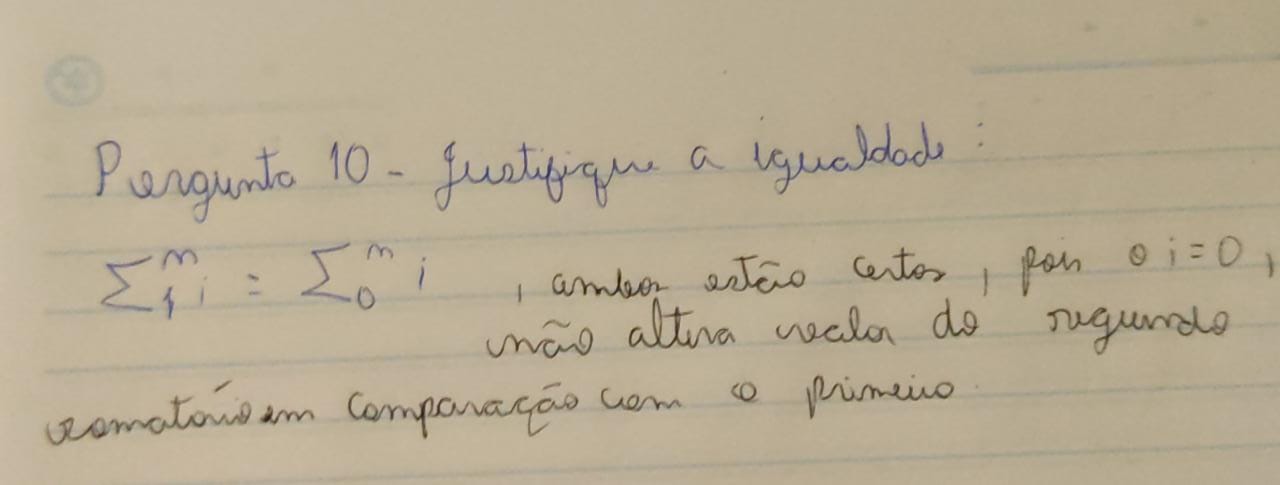 Pergunta 10 - Justifique a igualdade:
∑₁ⁿ i = ∑₀ⁿ i , ambos estão certos, pois o i=0,
não altera valor do segundo
somatório em comparação com o primeiro.